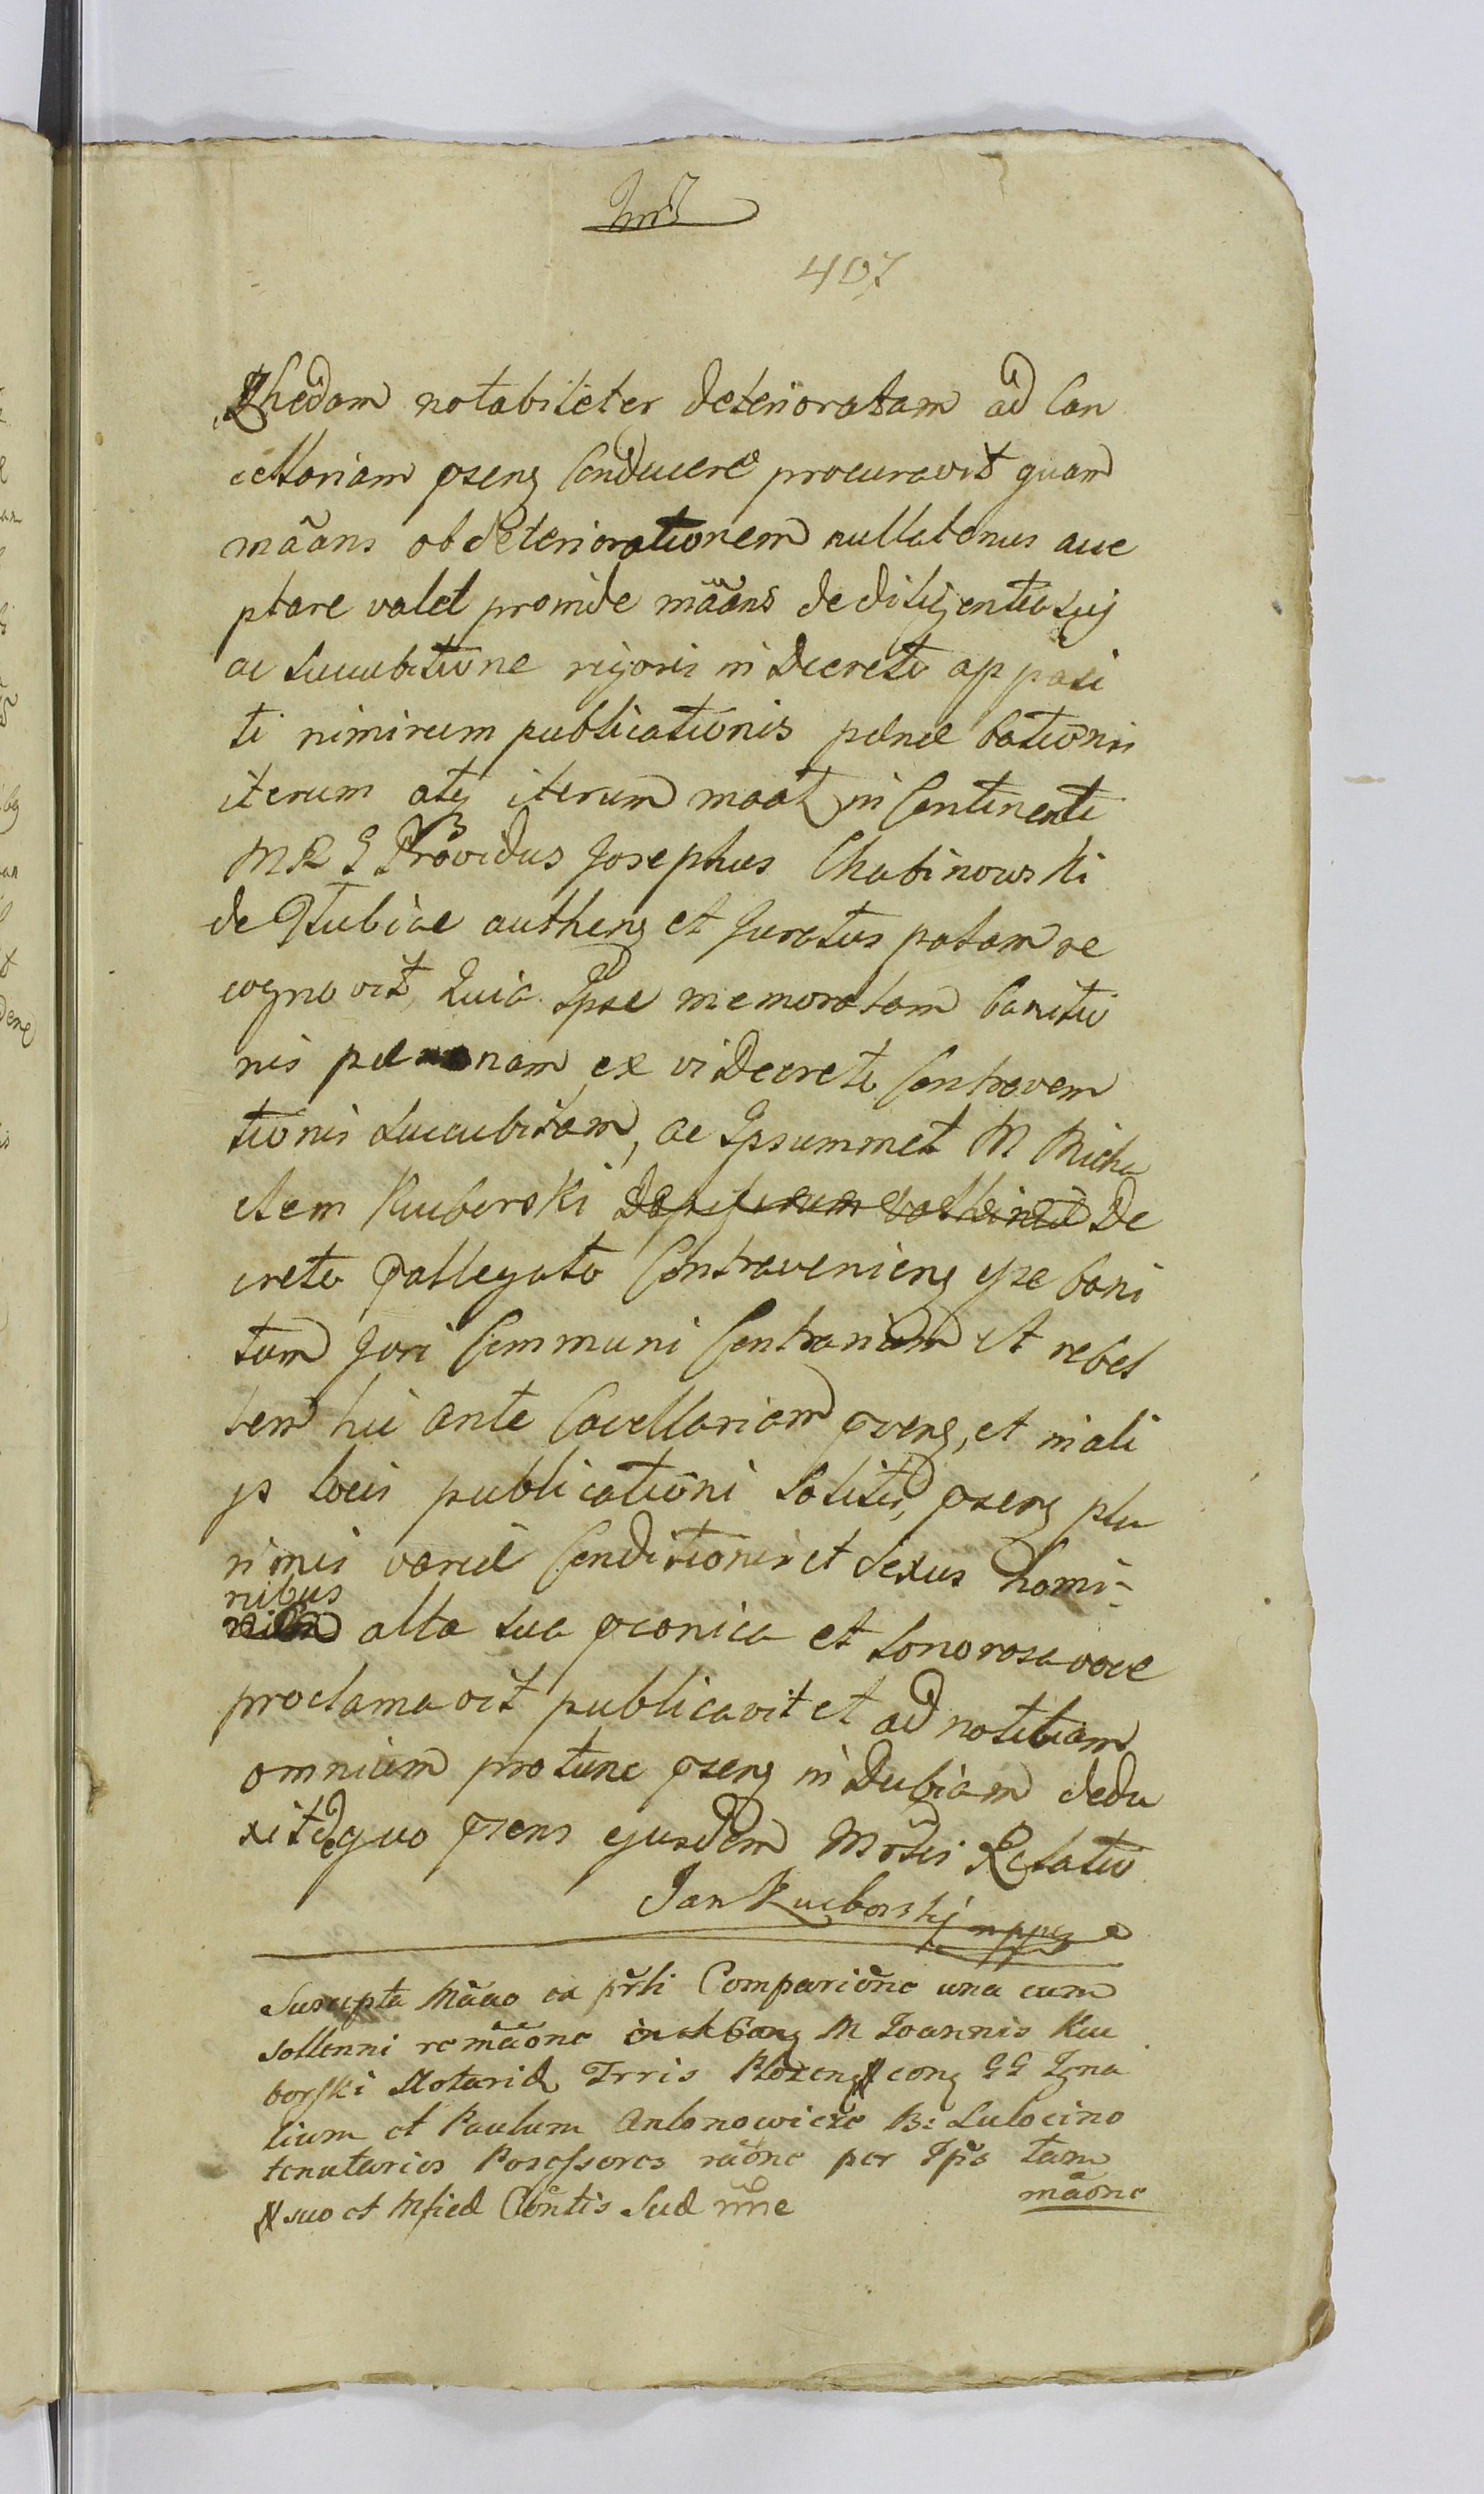 407
Rhedam notabiliter deterioratam ad Can
cellariam pseng Conducere procuravit quam
mãans ob deteriorationem nullatenus acce
ptare valet proinde mãans de diligentia suj
ac succubitione rigoris in Decreto apposi
ti nimirum publicationis penae bationis
iterum atq iterum maat in Continenti
M R G Providus Josephus Chabinowski
de autheng et Juratus palam re
cognovit, Quia Ipse memoratam banitio
nis penam ex vi Decreti Contraven
tionis succubitam, ac Ipsummet M Micha
elem Kucborski De
creto pallegato Contravenieng ipse bani
tum Juri Communi Contrarium et rebel
lem hic ante Cacellariam pveng, et in ali
js locis publicationi solitis, pseng plu
rimis variae Conditionis et Sexus homi-
nibus
alta sua pconica et sonorosa voce
proclamavit publicavit et ad notitiam
omnium protunc pseng in Dubiam dedu
xit de quo psens ejusdem Mrlis Relatio
Jan Kucborskj mppa
Suscepta Mãao ex prti Comparione una cum
sollenni remãone M Joannis Kuc
borski Notarid Trris cong GG Igna
tium et Paulum Antonowicze B: Lulocino
tenutarios Possessores raone per Ipõs tam
suo et Mfied Contis Sud nne
mãone